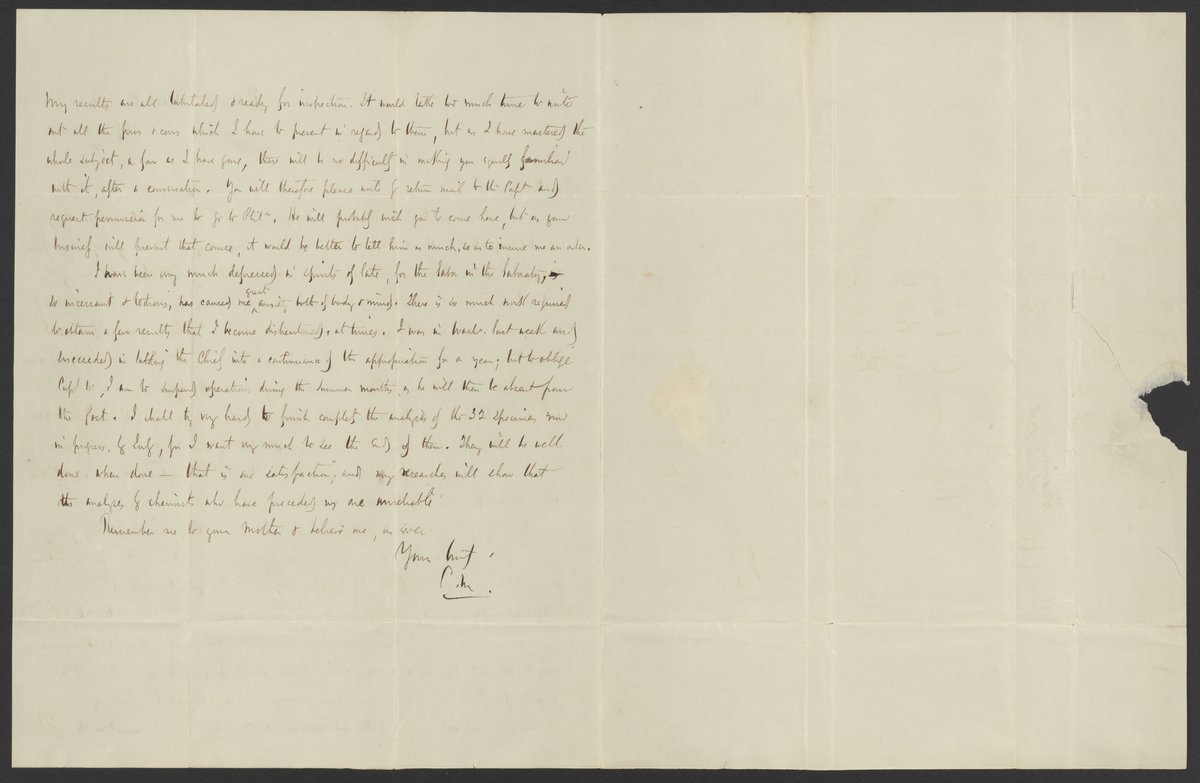 My results are all tabulated & ready for inspection. It would take too much time to write
out all the pros & cons which I have to present in regard to them, but as I have mastered the
whole subject, as far as I have gone, there will be no difficulty in making you equally familiar
with it, after a conversation. You will therefore please write by return mail to the Capt and
request permission for me to go to Phila. He will probably wish you to come here, but as your
business will prevent that course, it would be better to tell him as much, so as to insure me an order.
I have been very much depressed in spirits of late, for the labor in the laboratory,
so incessant & tedious, has caused me great anxiety both of body & mind. There is so much work required
to obtain a few results that I become disheartened, at times. I was in Washn. last week and
succeeded in talking the Chief into a continuance of the appropriation for a year; but to oblige
Capt W, I am to suspend operations during the summer months, as he will then be absent from
the post. I shall try very hard to finish complety the analyses of the 32 specimens now
in progress, by July, for I want very much to see the end of them. They will be well
done when done — that is one satisfaction; and my researches will show that
the analyses by chemists who have preceded us are unreliable!
Remember me to your Mother & believe me, as ever
Your
C.M.